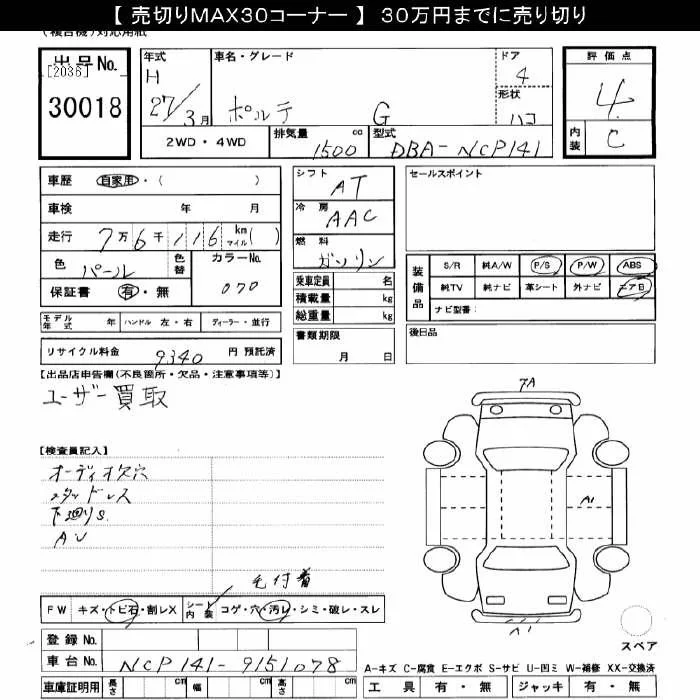 【 売切りMAX30コーナー 】 30万円までに売り切り
(複合機)対応用紙
出品No.
[2036]
30018
年式
H
27/3月
車名・グレード
ポルテ G
ドア
4
形状
ハコ
評価点
4
内装
C
2WD・4WD
排気量
1500 cc
型式
DBA-NCP141
車歴 自家用・( )
車検 年 月
走行 7万6千116 km マイル( )
色 パール
色替
カラーNo.
070
保証書 有・無
モデル年式 年 ハンドル 左・右 ディーラー・並行
リサイクル料金 9340 円 預託済
シフト
AT
冷房
AAC
燃料
ガソリン
乗車定員 名
積載量 kg
総重量 kg
書類期限
月 日
セールスポイント
装備品
S/R 純A/W P/S P/W ABS
純TV 純ナビ 革シート 外ナビ エアB
ナビ型番:
後日品
【出品店申告欄(不良箇所・欠品・注意事項等)】
ユーザー買取
【検査員記入】
オーディオ欠穴
スタッドレス
下廻りS
AU
毛付着
7A
A1
A1
FW キズ・トビ石・割レX シート内装 コゲ・穴・汚レ・シミ・破レ・スレ
登録No.
車台No. NCP141-9151078
車庫証明用 長さ cm 幅 cm 高さ cm
スペア
A-キズ C-腐食 E-エクボ S-サビ U-凹ミ W-補修 XX-交換済
工具 有・無 ジャッキ 有・無